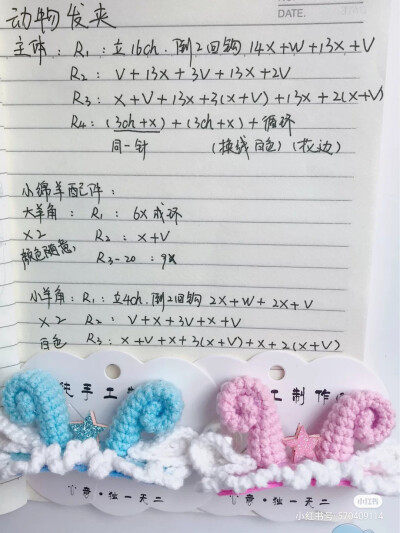 NO.
DATE.
动物发夹
主体：R₁：立16ch.倒2回钩 14X+W+13X+V
R₂：V+13X+3V+13X+2V
R₃：X+V+13X+3(X+V)+13X+2(X+V)
R₄：(3ch+X)+(3ch+X)+循环
同一针 (换线白色)(花边)
小绵羊配件：
大羊角：R₁：6X成环
X2 R₂：X+V
颜色随意，R₃-20：9X
小羊角：R₁：立4ch.倒2回钩 2X+W+2X+V
X2 R₂：V+X+3V+X+V
白色 R₃：X+V+X+3(X+V)+X+2(X+V)
手工制
工制作
独一无二
独一无二
小红书
小红书号:570409114